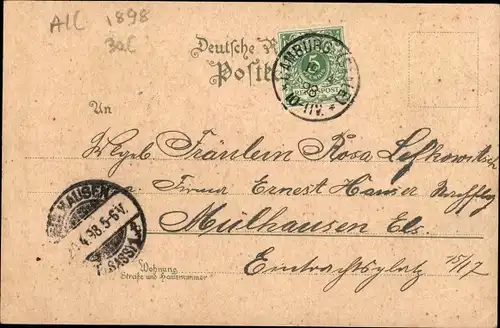 A1C 1898
30C
Deutsche R
Postk
5
REICHSPOST
HAMBURG
98
11V.
An
Wohlgeb. Fräulein Rosa Lefkowitsch
p.a. Firma Ernest Hauser Nachflg
Mülhausen Els.
Eintrachtsplatz 15/17
HAUSEN
4.98.5-6V.
(ELSASS) 1
Wohnung
Straße und Hausnummer